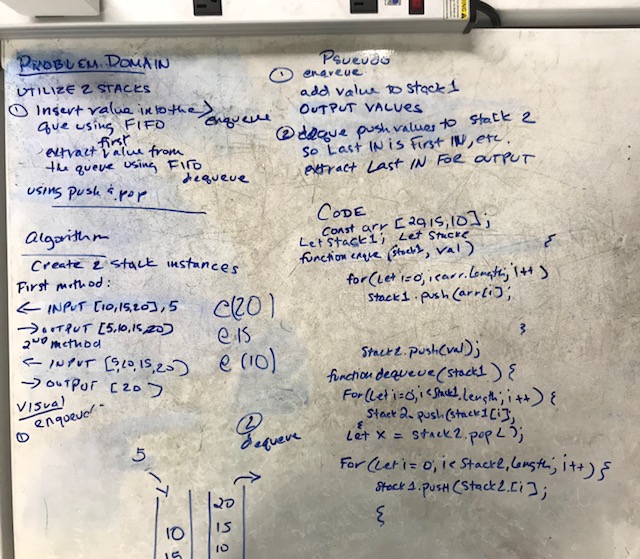 PROBLEM DOMAIN
UTILIZE 2 STACKS
① Insert value into the > enqueue
que using FIFO
first
extract value from
the queue using FIFO
dequeue
using push & pop
Algorithm
Create 2 stack instances
First method:
← INPUT [10,15,20], 5
→ OUTPUT [5,10,15,20]
2ND method
← INPUT [5,10,15,20]
→ OUTPUT [20]
e(20)
e 15
e (10)
Visual
① enqueue
5
10
15
② dequeue
20
15
10
Pseudo
① enqueue
add value to stack 1
OUTPUT VALUES
② deque push values to stack 2
so Last IN is First IN, etc.
extract Last IN FOR OUTPUT
CODE
const arr [20,15,10];
Let stack1; Let Stack2
function enque (stack1, val) {
for(Let i=0, i<arr.length, i++)
stack1.push(arr[i];
}
Stack2.push(val);
function dequeue(stack1) {
For(Let i=0, i<Stack1.length; i++) {
Stack2.push(stack1[i],
}
Let x = stack2.pop();
For(Let i= 0, i< Stack2, Length; i++) {
Stack1.push(Stack2.[i];
{